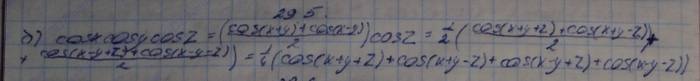 29.5.
б) cosx cosy cosz = (cos(x+y)+cos(x-y))/2 cosz = 1/2 (cos(x+y+z)+cos(x+y-z))/2 +
+ cos(x-y+z)+cos(x-y-z))/2) = 1/4(cos(x+y+z)+cos(x+y-z)+cos(x-y+z)+cos(x-y-z))